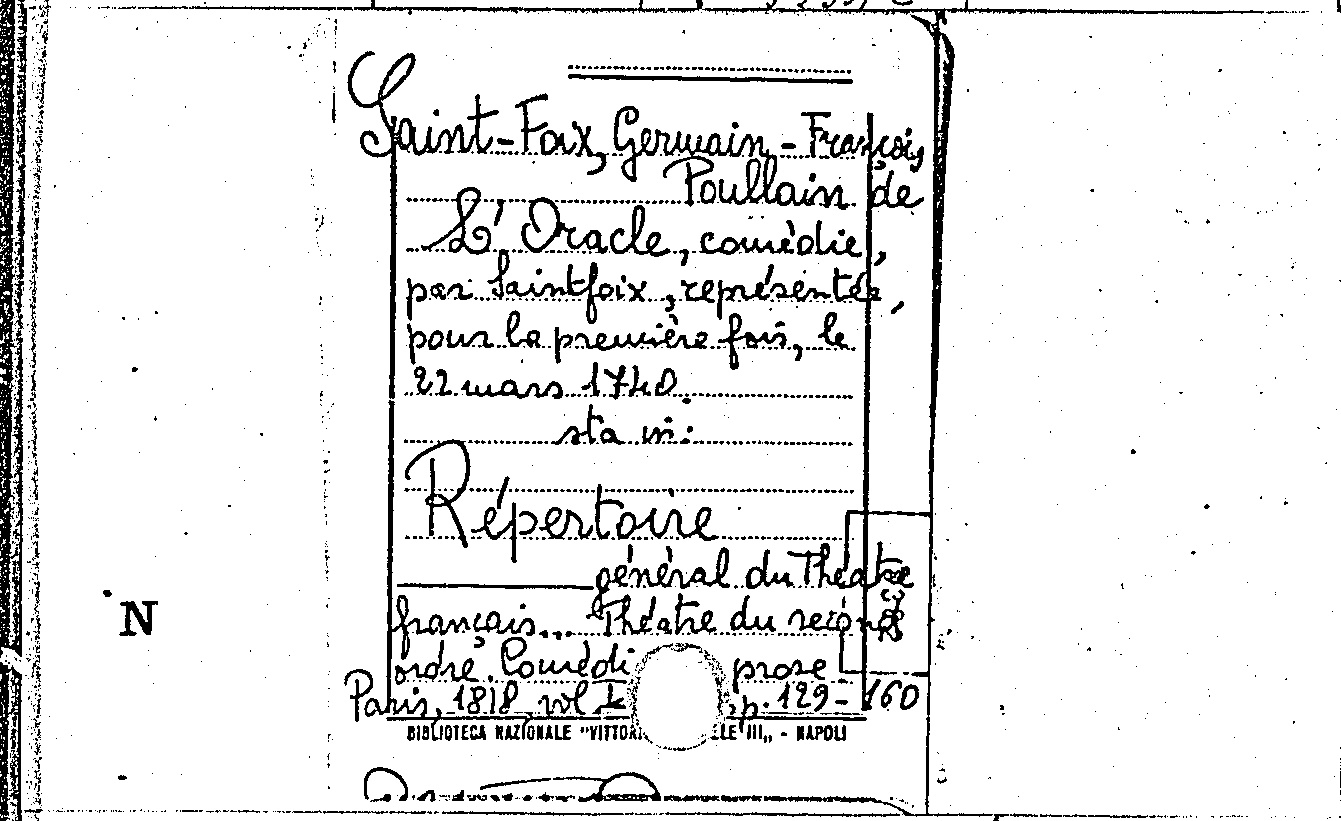 Saint-Foix, Germain-François
Poullain de
L'Oracle, comèdie,
par Saintfoix, représentée,
pour la première fois, le
22 mars 1740.
sta in:
Répertoire
général du Théatre
français... Théatre du second
ordre. Comédi prose
Paris, 1818, vol. p. 129-160
BIBLIOTECA NAZIONALE "VITTORI LE III„ - NAPOLI
N